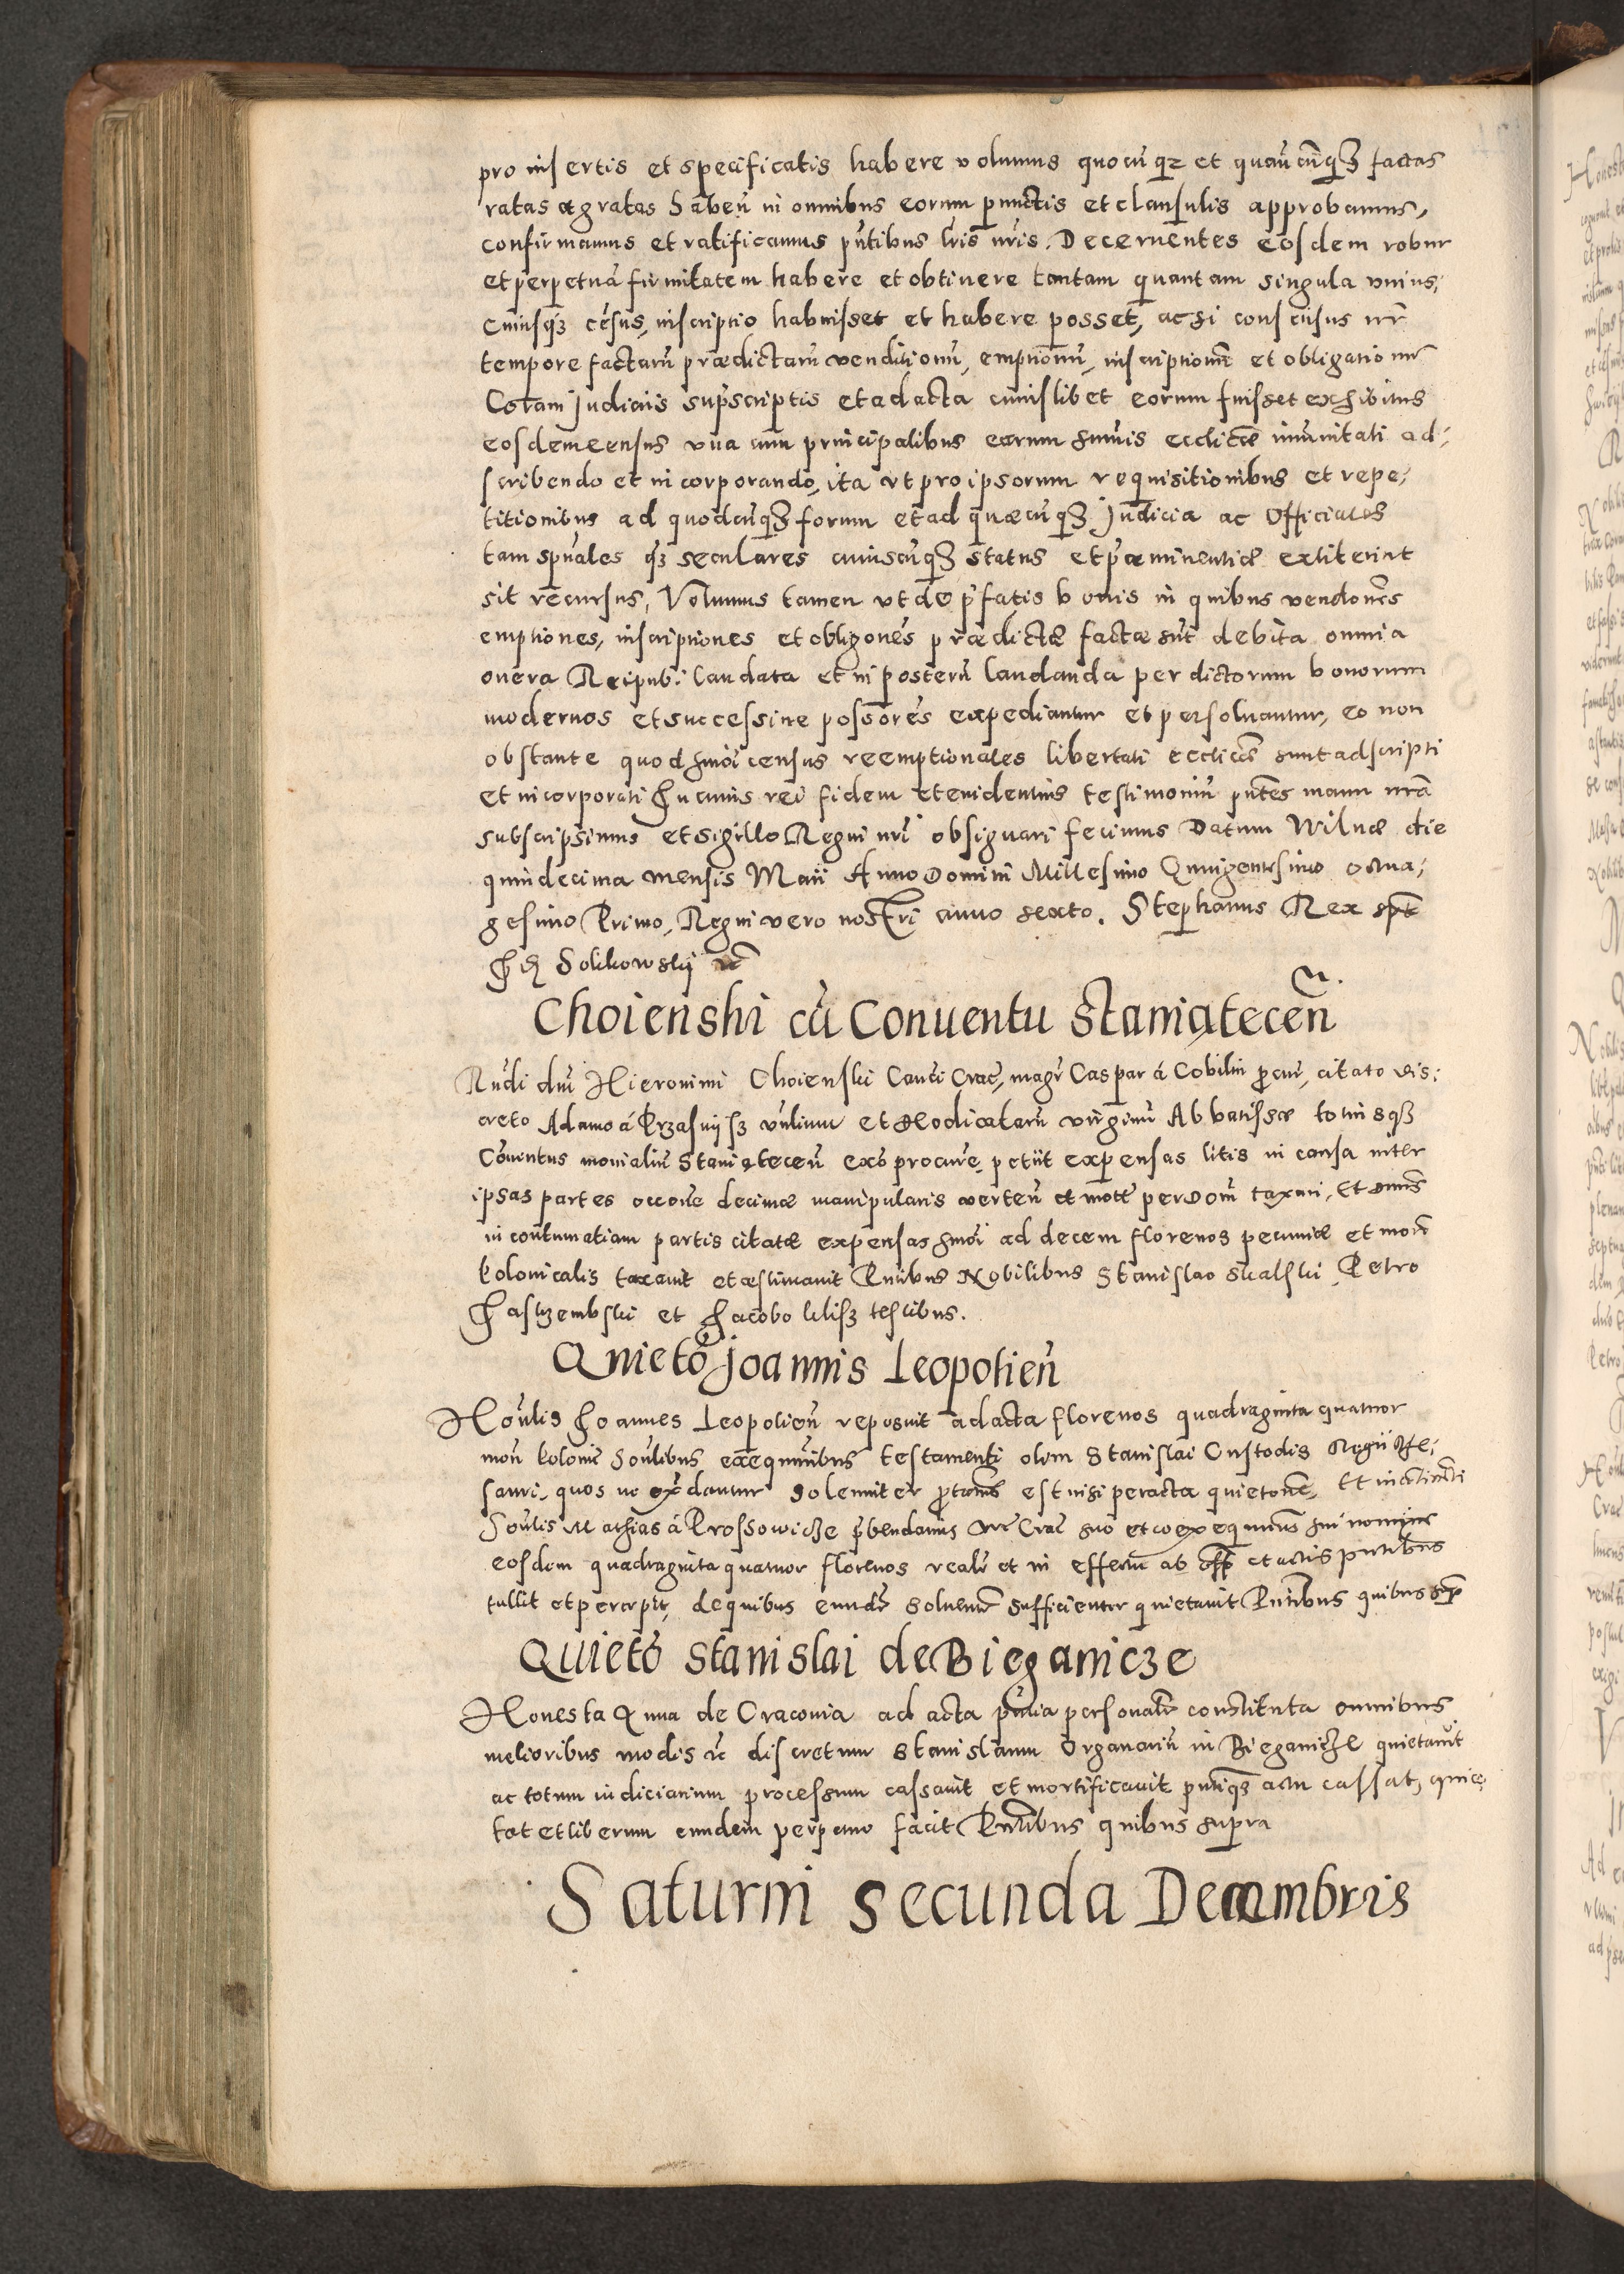 pro insertis et specificatis habere volumus quocūqꝫ et quāucūqꝫ factas
ratas et gratas habeñ in omnibus eorum punctis et clausulis approbamus,
confirmamus et ratificamus pñtibus lrīs nrīs. Decernentes eosdem robur
et perpetuā firmitatem habere et obtinere tantam quantam singula unius,
cuiusqꝫ cēsus, inscriptio habuisset et habere posset, ac si consensus nr̄
tempore factarū prædictarū venditionū, emptionū, inscriptionū et obligationū
Coram Judiciis supscriptis et ad acta cuiuslibet eorum fuisset exhibitus
eosdem census una cum principalibus earum summis eccliæ imunitati ad-
scribendo et incorporando, ita ut pro ipsorum requisitionibus et repe-
titionibus ad quodcūqꝫ forum et ad quæcūqꝫ Judicia ac Officiales
tam spūales qꝫ seculares cuiuscūqꝫ status et præminentiæ extiterint
sit recursus, Volumus tamen ut de pfatis bonis in quibus vendones
emptiones, inscriptiones et obligones prædictæ factæ sūt debita omnia
onera Reipub: laudata et in posterū laudanda per dictorum bonorum
modernos et successive possores expediantur et persolvantur, eo non
obstante quod hmōi census reemptionales libertati eccliæ sunt adscripti
et incorporati In cuius rei fidem et evidentius testimoniū pñtes manu nrā
subscripsimus et sigillo Regni nrī obsignari fecimus Datum Wilnæ die
quindecima mensis Maii Anno Domini Millesimo Quingentesimo octua-
gesimo Primo, Regni vero nostri anno sexto. Stephanus Rex spt
J D Solikowskij
Choienski cū Conventu Staniąteceñ
Rndi dnī Hieronimi Choienski Canci Crac, magr Caspar á Cobilin pcur, citato dis-
creto Adamo á
Cōventus monialiū Staniąteceñ exō procure, petiit expensas litis in causa inter
ipsas partes occone decimæ manipularis verteñ et mot perdom taxari, Et
in contumatiam partis citatæ expensas hmōi ad decem florenos pecuniæ et
Polonicalis taxavit et æstimavit Pñtibus Nobilibus Stanislao Skalski, Petro
Jastrzembski et Jacobo testibus.
Quietō Joannis Leopolieñ
Honlis Joannes Leopolieñ reposuit ad acta florenos quadraginta quatuor
mon polonic honlibus exequutoribus testamenti olim Stanislai Custodis Regii The-
sauri, quos ne exdantur solemniter ptatus est nisi peracta quietone, Et
honlis Mathias á Prossowicze pbendarius Crac suo et coexequutoris sui nomine
eosdem quadraginta quatuor florenos realr et in effectu ab off et actis pñtibus
tullit et percepit, de quibus eundē solventē sufficienter quietavit Pñtibus quibus sup
Quietō Stanislai de Bieganicze
Honesta Anna de Cracovia ad acta pñtia personalr constituta omnibus
melioribus modis etc discretum Stanislaum Organariū in Bieganicze quietavit
ac totum iudiciarium processum cassavit et mortificavit pñtiqꝫ actu cassat, quie-
tat et liberum eundem perpetuo facit Pñtibus quibus supra
Saturni secunda Decembris